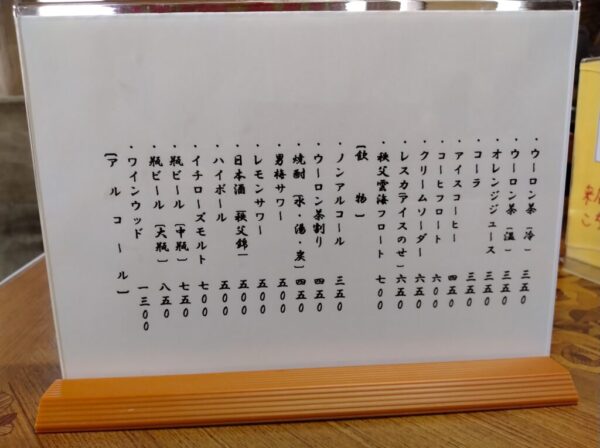 〔アルコール〕
・ワインウッド 一三〇〇
・瓶ビール〔大瓶〕 八五〇
・瓶ビール〔中瓶〕 七五〇
・イチローズモルト 七〇〇
・ハイボール 五〇〇
・日本酒〔秩父錦〕 五〇〇
・レモンサワー 五〇〇
・男梅サワー 五〇〇
・焼酎〔水・湯・炭〕 四五〇
・ウーロン茶割り 四五〇
・ノンアルコール 三五〇
〔飲 物〕
・秩父雲海フロート 七〇〇
・レスカ〔アイスのせ〕 六五〇
・クリームソーダー 六五〇
・コーヒフロート 六〇〇
・アイスコーヒー 四五〇
・コーラ 三五〇
・オレンジジュース 三五〇
・ウーロン茶〔温〕 三五〇
・ウーロン茶〔冷〕 三五〇